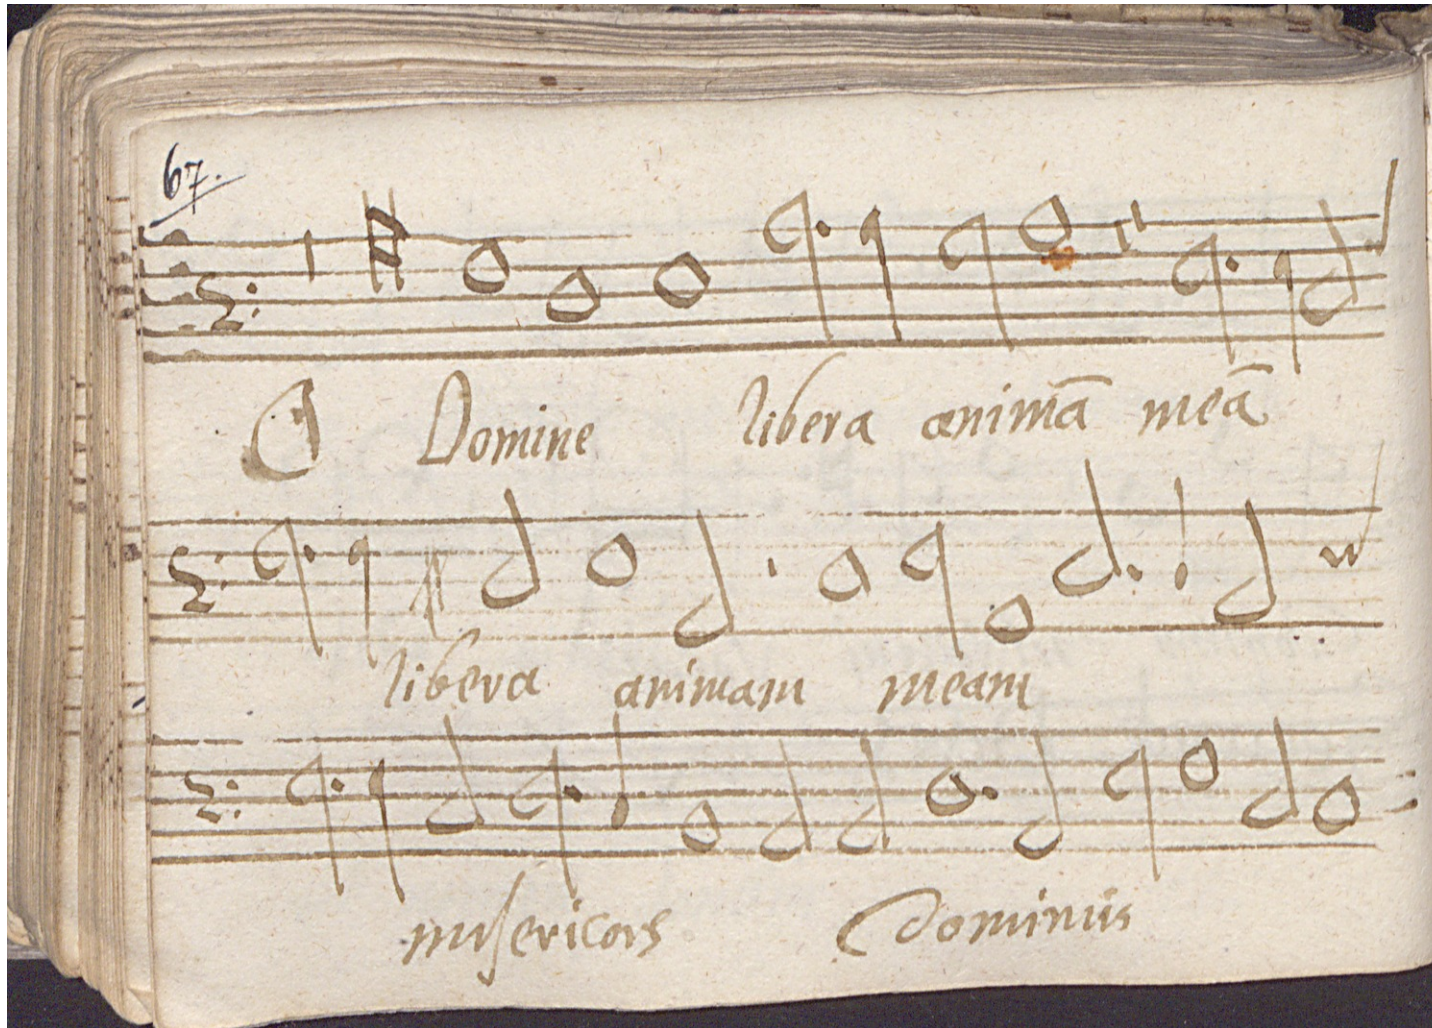 67.
O Domine libera animā meā
libera animam meam
misericors dominus